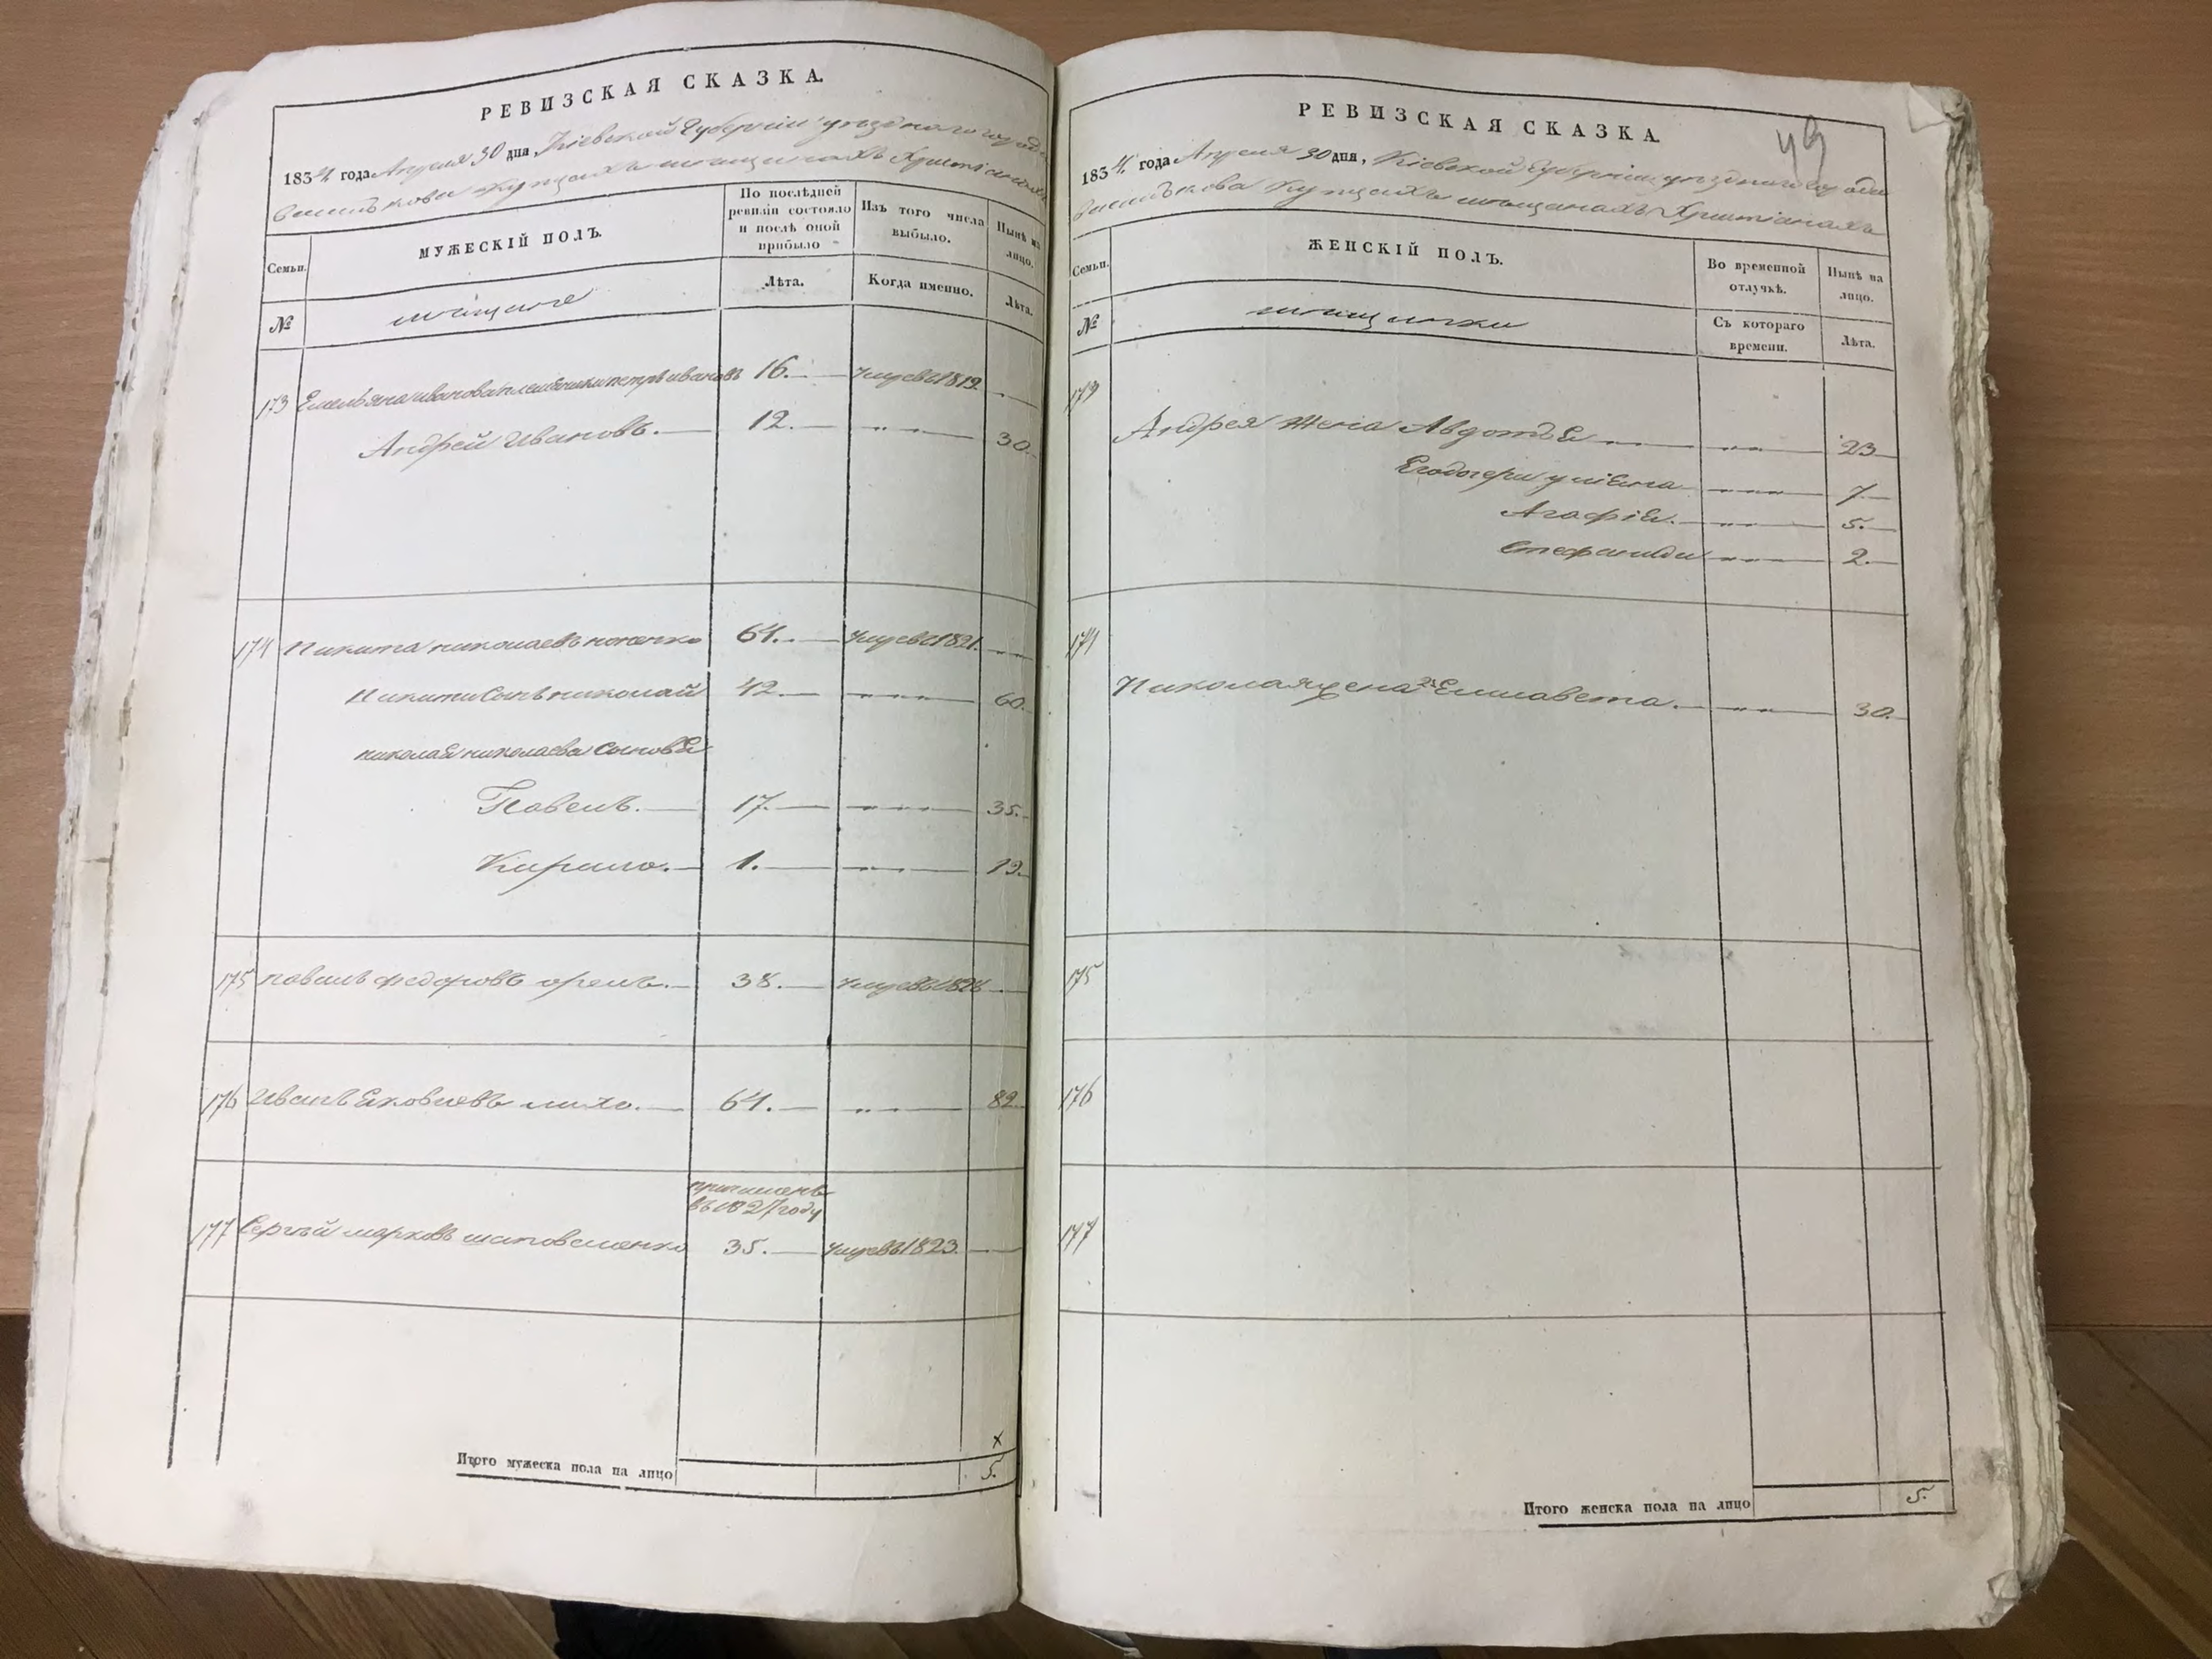 РЕВИЗСКАЯ СКАЗКА.
1834 года Апреля 30 дня, Кіевской Губерніи уѣзднаго города
Василькова Купцахъ мещанахъ Христіанахъ
Семьи.
МУЖЕСКІЙ ПОЛЪ.
По послѣдней ревизіи состояло и послѣ оной прибыло
Изъ того числа выбыло.
Нынѣ на лицо.
Лѣта.
Когда именно.
Лѣта.
№
мещане
173 Емельяна Иванова племенники петръ ивановъ 16. умре въ 1819.
Андрей Ивановъ. 12. 30.
174 Никита николаевъ 64. умре въ 1821.
Никиты Сынъ николай 42. 60.
николая николаева сыновья
Павелъ. 17. 35.
Кирило. 1. 19.
175 павелъ федоровъ орелъ. 38. умре въ
176 Иванъ Яковлевъ лихо. 64. 82.
причисленъ
въ 1827 году
177 Сергѣй марковъ шаповаленко 35. умре въ 1823.
х
Итого мужеска пола на лицо 5.
49
РЕВИЗСКАЯ СКАЗКА.
1834 года Апреля 30 дня, Кіевской Губерніи уѣзднаго города
Василькова Купцахъ мещанахъ Христіанахъ
Семьи.
ЖЕНСКІЙ ПОЛЪ.
Во временной отлучкѣ.
Нынѣ на лицо.
Съ котораго времени.
Лѣта.
№
мещанки
173
Андрея Жена Авдотья 23
Его дочери уліяна 7.
Агафія. 5.
Стефанида 2.
174
Николая жена 2я Елисавета. 30.
175
176
177
Итого женска пола на лицо 5.